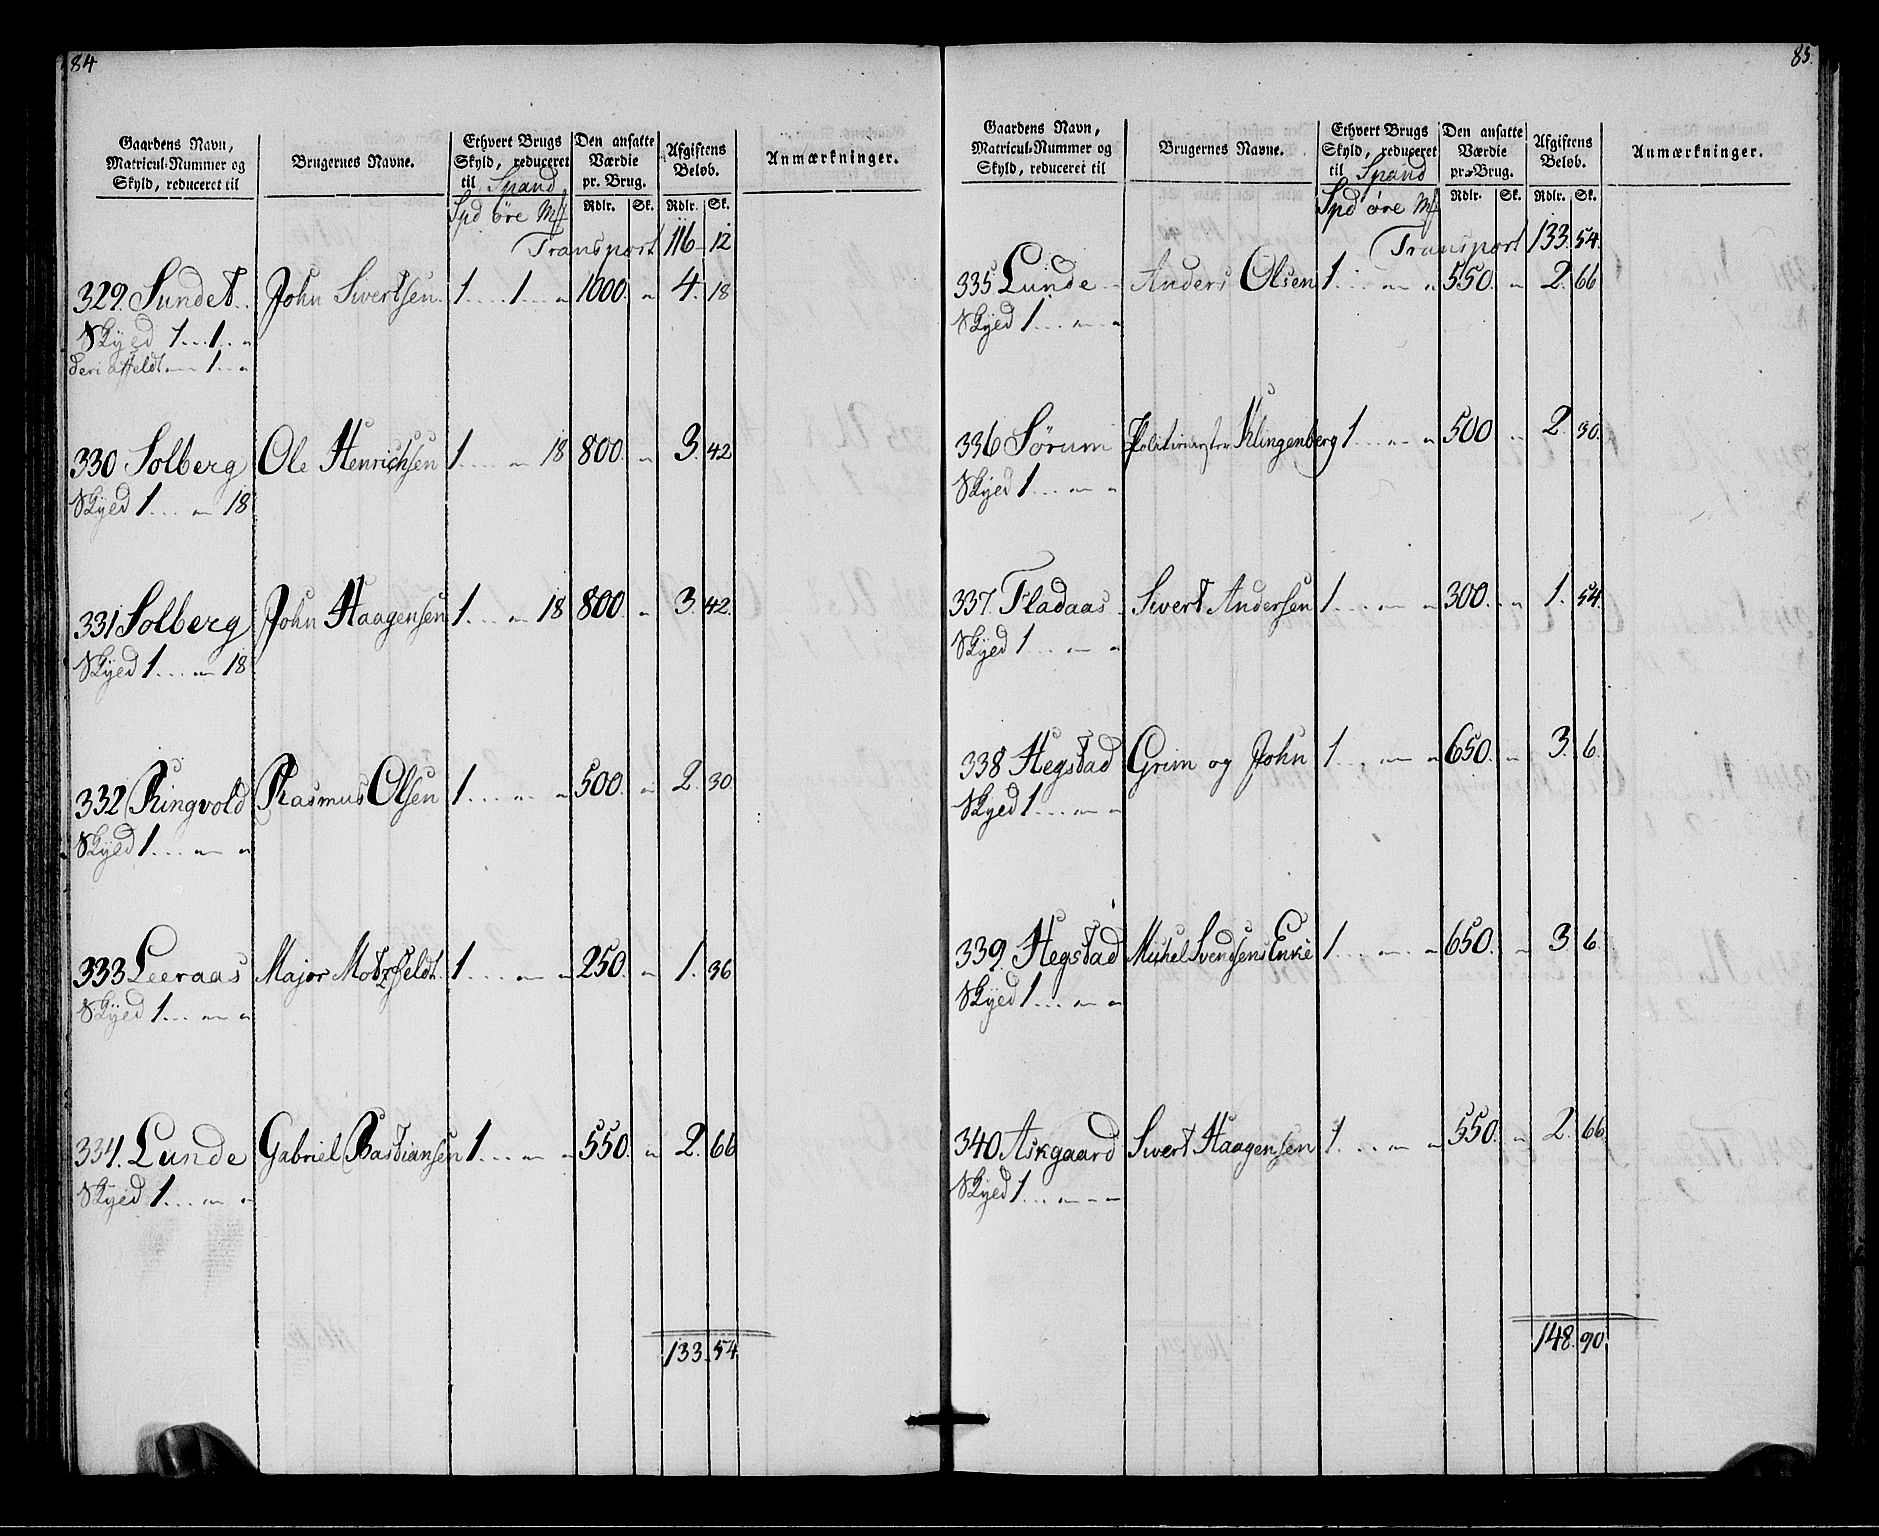 84
Gaardens Navn, Matricul-Nummer og Skyld, reduceret til | Brugernes Navne. | Ethvert Brugs Skyld, reduceret til Spand | Den ansatte Værdie pr. Brug. | Afgiftens Beløb. | Anmærkninger.
Spd øre Mk | Rdlr. | Sk. | Rdlr. | Sk.
Transport 116 12
329. Sundet.. John Sivertsen. 1....1..„ 1000. „ 4. 18
Skyed 1...1..„
1..„
330 Solberg Ole Henrichsen 1....„ 18 800. „ 3. 42
Skyed 1...„ 18
331 Solberg John Haagensen 1....„ 18 800 „ 3. 42.
Skyed 1...„ 18
332 Ringvold Rasmus Olsen 1...„ „ 500. „ 2. 30
Skyed 1...„ „
333 Leeraas Major Motzfeldt. 1...„ „ 250. „ 1. 36
Skyed 1...„ „
334. Lunde Gabriel Bastiansen 1...„ „ 550. „ 2. 66
Skyed 1...„ „
133. 54
85.
Gaardens Navn, Matricul-Nummer og Skyld, reduceret til | Brugernes Navne. | Ethvert Brugs Skyld, reduceret til Spand | Den ansatte Værdie pr. Brug. | Afgiftens Beløb. | Anmærkninger.
Spd øre Mk | Rdlr. | Sk. | Rdlr. | Sk.
Transport 133. 54.
335 Lunde Anders Olsen 1...„ „ 550. „ 2. 66
Skyed 1...„ „
336 Sørum Politiemester Klingenberg 1...„ „ 500 „ 2. 30.
Skyed 1...„ „
337. Fladaas Sivert Andersen 1...„ „ 300. „ 1. 54.
Skyed 1...„ „
338 Hegstad Grim og John 1...„ „ 650. „ 3. 6.
Skyed 1...„ „
339. Hegstad Michel Svendsens Enke 1...„ „ 650. „ 3. 6.
Skyed 1...„ „
340 Askgaard Sivert Haagensen 1...„ „ 550. „ 2. 66
Skyed 1...„ „
148. 90